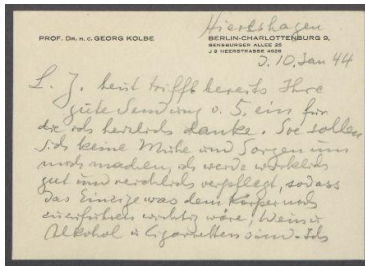 Hierkshagen
PROF. DR. H. C. GEORG KOLBE
BERLIN-CHARLOTTENBURG 9,
SENSBURGER ALLEE 25
J 9 HEERSTRASSE 4628
D. 10. Jan 44
L. J. heut trifft bereits Ihre
gute Sendung v. 5. ein für
die ich herzlich danke. Sie sollen
sich keine Mühe und Sorgen um
mich machen, ich werde wirklich
gut und reichlich verpflegt, sodass
das Einzige was dem Körper noch
zuzuführen wichtig wäre, Wein u
Alkohol u Cigaretten sind. Ich